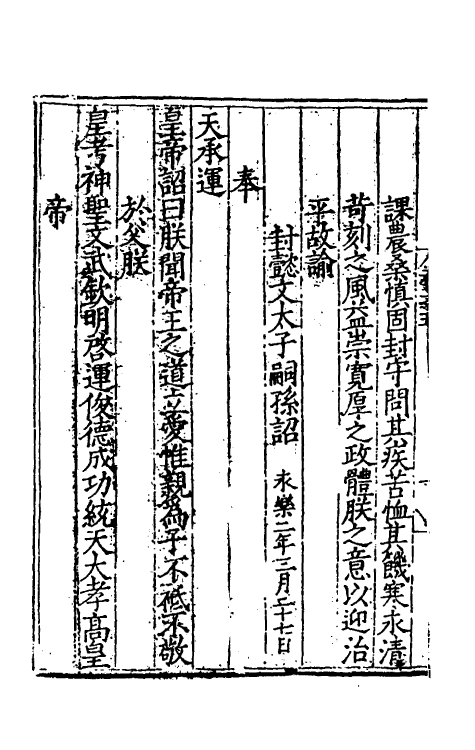 課農桑慎固封守問其疾苦恤其饑寒永清
苛刻之風益崇寛厚之政體朕之意以迎治
平故諭
封懿文太子嗣孫詔 永樂二年三月二十七日
奉
天承運
皇帝詔曰朕聞帝王之道立愛惟親為子不祗不敬
於父朕
皇考神聖文武欽明啓運俊德成功統天大孝高皇
帝